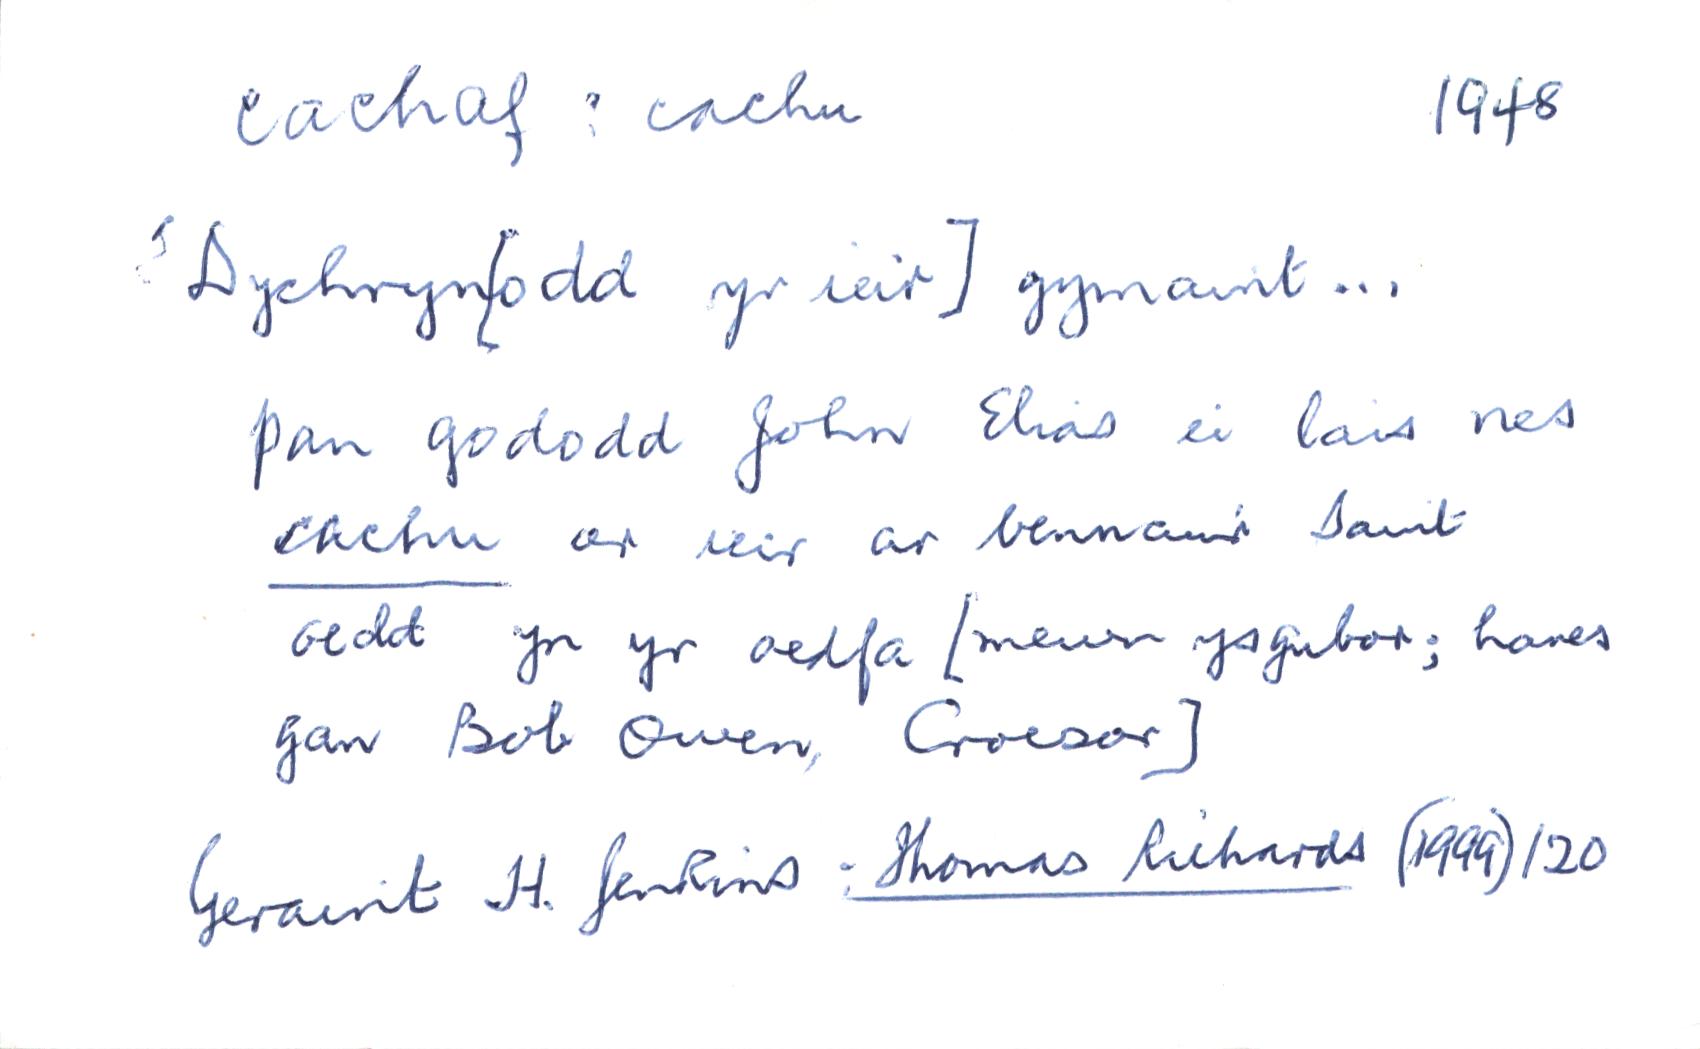 cachaf : cachu 1948
'Dychryn[odd yr ieir] gymaint...
pan gododd John Elias ei lais nes
cachu or ieir ar bennau'r Saint
oedd yn yr oedfa [mewn ysgubor; hanes
gan Bob Owen, Croesor]
Geraint H. Jenkins : Thomas Richards (1999) /20